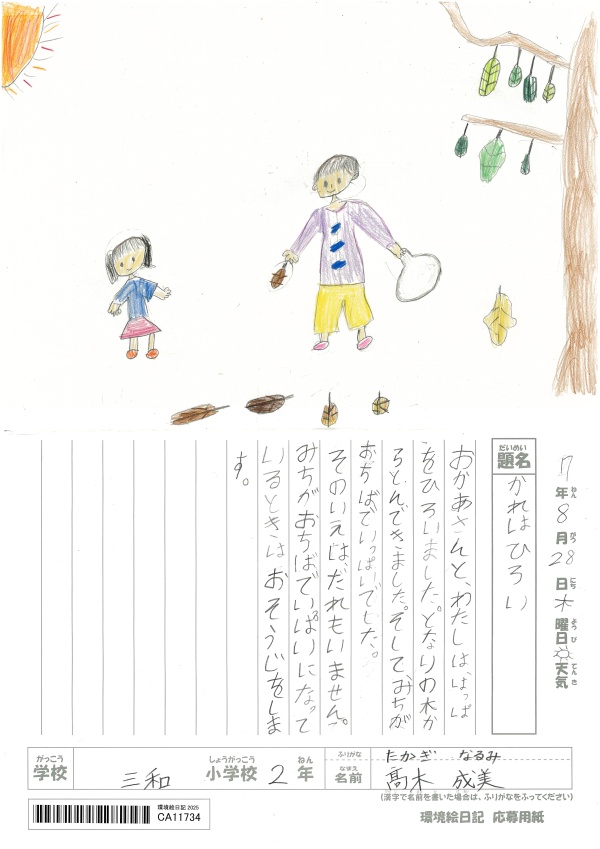 7年8月28日木曜日 天気
ねん がつ にち ようび てんき
だいめい
題名 かれはひろい
おかあさんと、わたしは、はっぱ
をひろいました。となりの木か
らとんできました。そして、みちが
おちばでいっぱいでした。
そのいえは、だれもいません。
みちがおちばでいっぱいになって
いるときは、おそうじをしま
す。
がっこう しょうがっこう ねん
学校 三和 小学校 2年
ふりがな たかぎ なるみ
なまえ
名前 髙木 成美
(漢字で名前を書いた場合は、ふりがなをふってください)
環境絵日記 2025
CA11734
環境絵日記 応募用紙